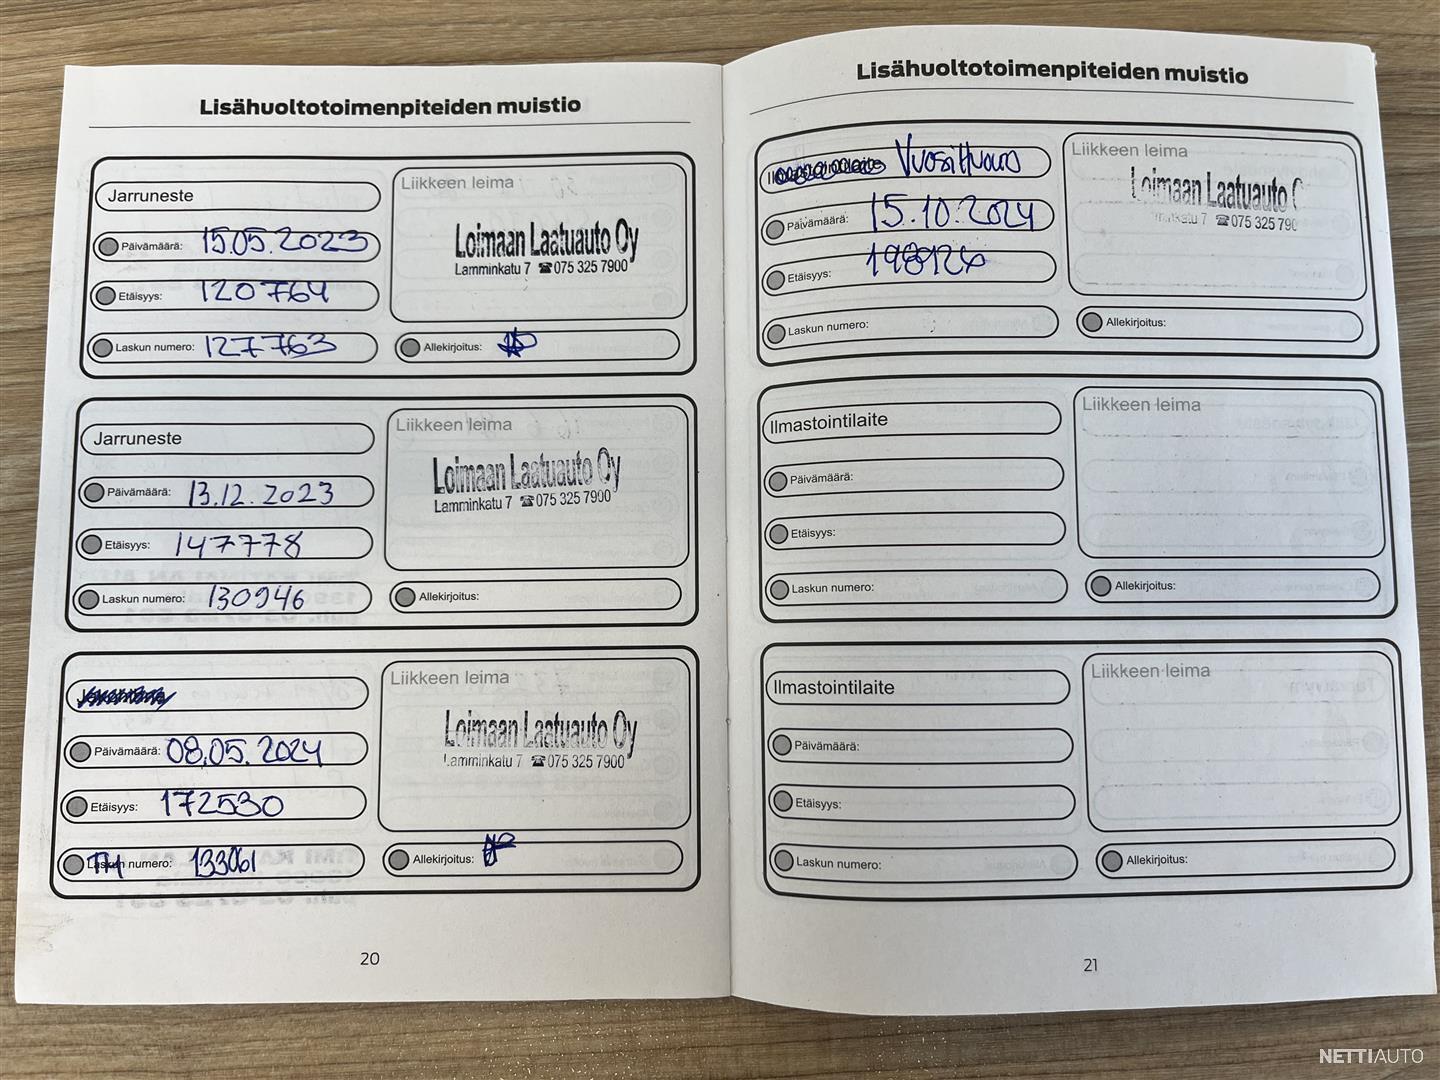 Lisähuoltotoimenpiteiden muistio
Jarruneste
Päivämäärä: 15.05.2023
Etäisyys: 120764
Laskun numero: 127763
Liikkeen leima
Loimaan Laatuauto Oy
Lamminkatu 7 ☎075 325 7900
Allekirjoitus:
Jarruneste
Päivämäärä: 13.12.2023
Etäisyys: 147778
Laskun numero: 130946
Liikkeen leima
Loimaan Laatuauto Oy
Lamminkatu 7 ☎075 325 7900
Allekirjoitus:
Päivämäärä: 08.05.2024
Etäisyys: 172530
Laskun numero: 133061
Liikkeen leima
Loimaan Laatuauto Oy
Lamminkatu 7 ☎075 325 7900
Allekirjoitus:
20
Lisähuoltotoimenpiteiden muistio
Päivämäärä: 15.10.2024
Etäisyys:
Laskun numero:
Liikkeen leima
Loimaan Laatuauto
☎075 325 790
Allekirjoitus:
Ilmastointilaite
Päivämäärä:
Etäisyys:
Laskun numero:
Liikkeen leima
Allekirjoitus:
Ilmastointilaite
Päivämäärä:
Etäisyys:
Laskun numero:
Liikkeen leima
Allekirjoitus:
21
NETTIAUTO